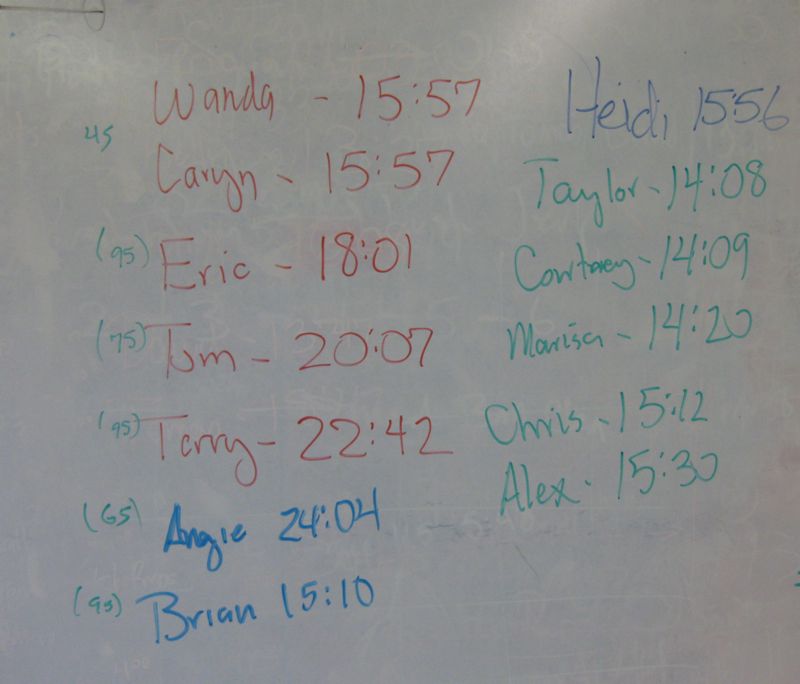 Wanda - 15:57
45
Caryn - 15:57
(95) Eric - 18:01
(75) Tom - 20:07
(95) Terry - 22:42
(65) Angie 24:04
(95) Brian 15:10
Heidi 15:56
Taylor - 14:08
Courtney - 14:09
Marisa - 14:20
Chris - 15:12
Alex - 15:30